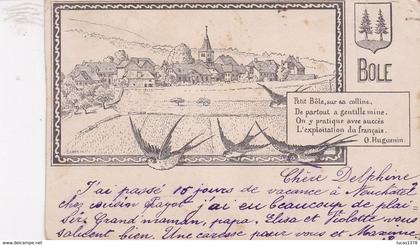 BOLE
Petit Bôle, sur sa colline,
De partout a gentille mine.
On y pratique avec succès
L'exploitation du français.
O. Huguenin.
Chère Delphine
J'ai passé 10 jours de vacance à Neuchâtel
chez cousin Payot j'ai eu beaucoup de plai-
sir, Grand'maman, papa, Elisa et Violette vous
saluent bien. Une caresse pour vous et
luckyx1378